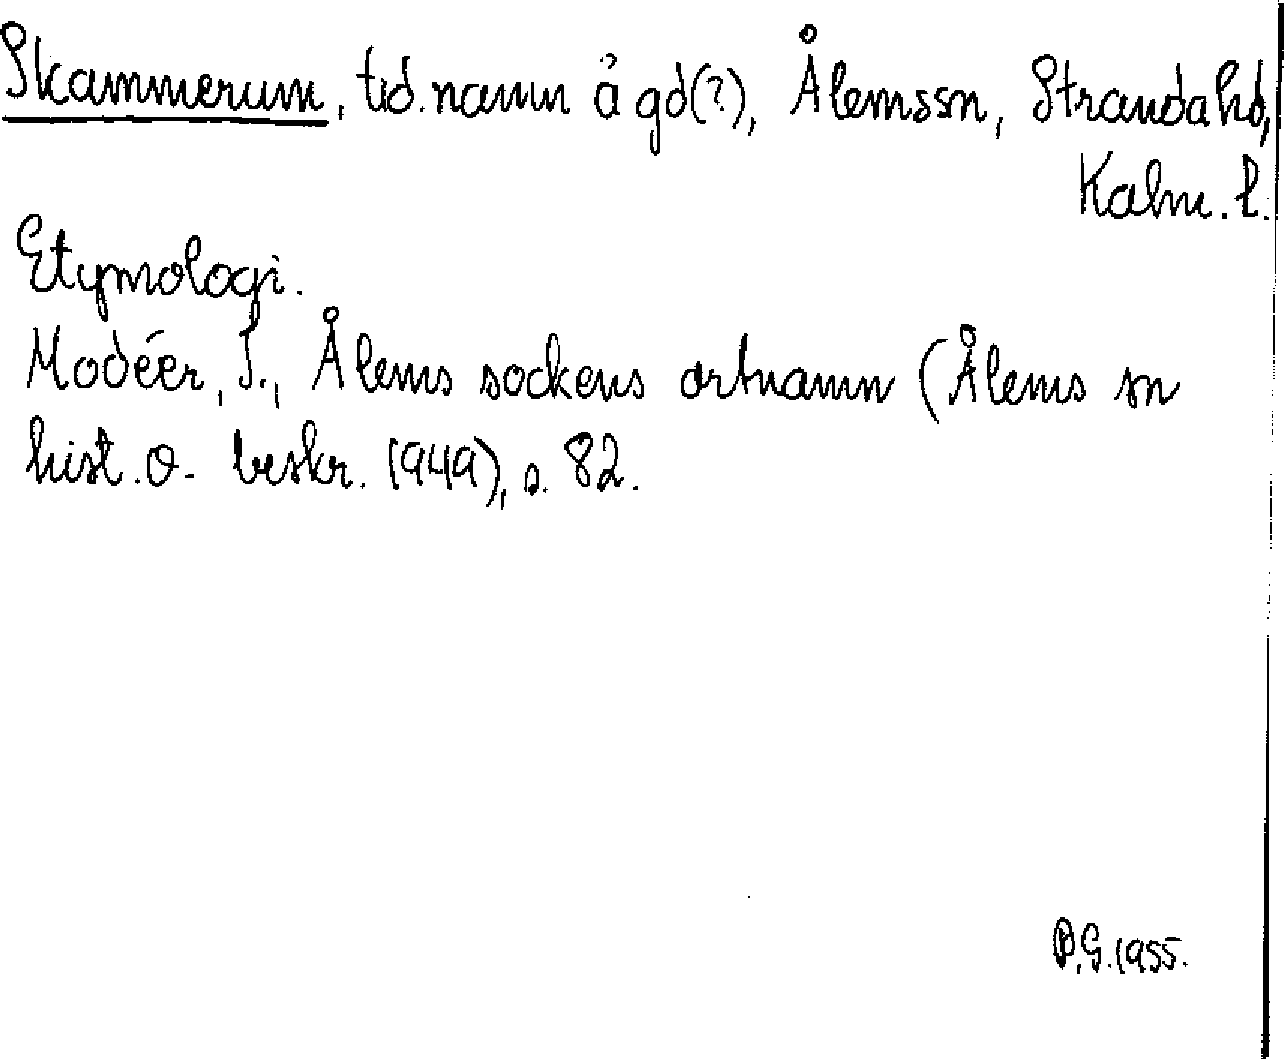 Skammerum, tid. namn å gd(?), Ålemssn, Stranda hd,
Kalm. l.
Etymologi.
Modéer, I., Ålems sockens ortnamn (Ålems sn
hist. o. beskr. 1949), s. 82.
B.G. 1955.